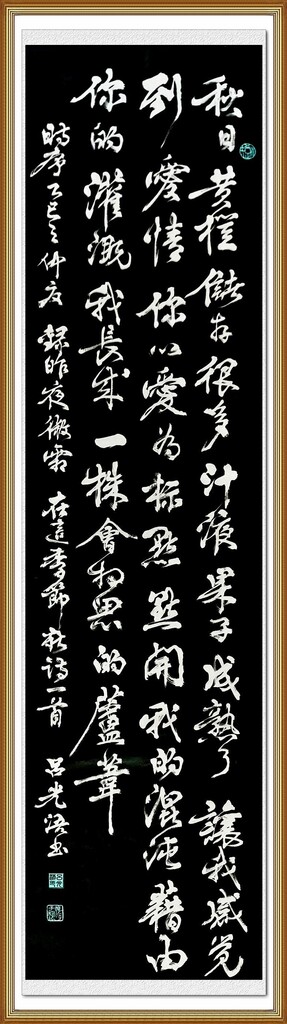 秋日黃橙儲存很多汁液果子成熟了讓我感觉
到愛情你以愛為标點點開我的混沌藉由
你的灌溉我長成一株會相思的蘆葦
時序乙巳之仲夏錄昨夜微霜在這季節新詩一首呂光浯书